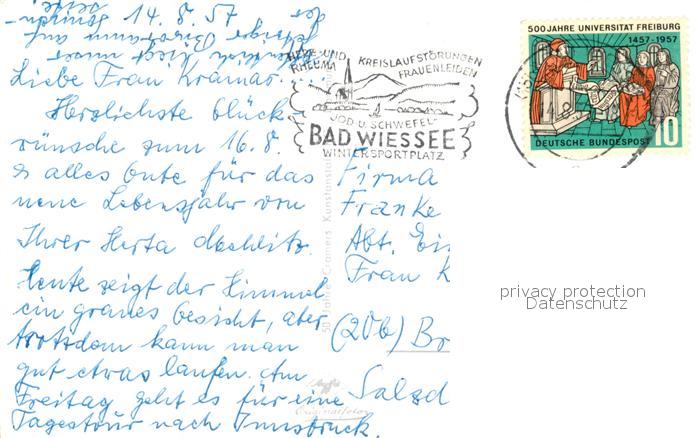 14. 8. 57
Liebe Frau Kramar.
Herzlichste Glück-
wünsche zum 16. 8.
& alles Gute für das
neue Lebensjahr von
Ihrer Herta
Heute zeigt der Himmel
ein graues Gesicht, aber
trotzdem kann man
gut etwas laufen. Am
Freitag geht es für eine
Tagestour nach Innsbruck.
HERZ- UND KREISLAUFSTÖRUNGEN
RHEUMA FRAUENLEIDEN
JOD- U. SCHWEFEL-
BAD WIESSEE
WINTERSPORTPLATZ
500 JAHRE UNIVERSITÄT FREIBURG
1457-1957
DEUTSCHE BUNDESPOST
10
Firma
Franke
Abt. Ei
Frau K
(20b) Br
Salzd
Cramers Kunstanstalt
Originalfoto
privacy protection
Datenschutz